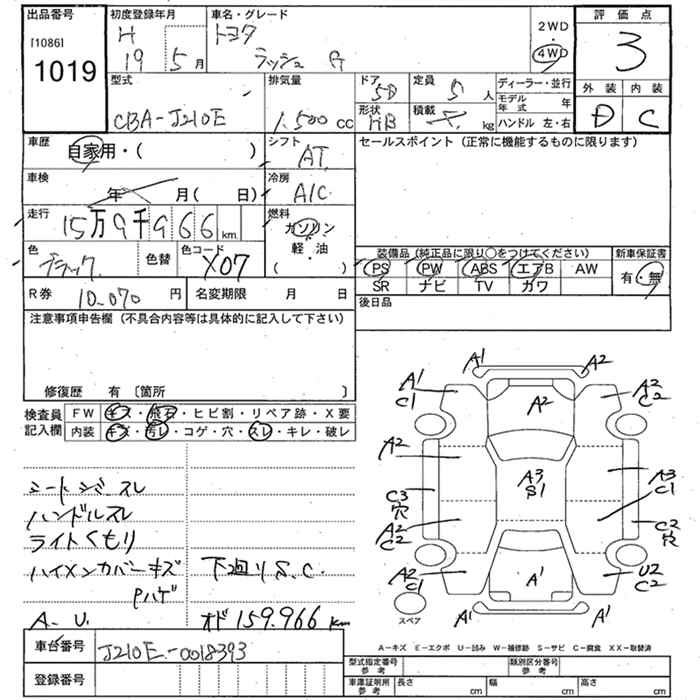 出品番号
[1086]
1019
初度登録年月
H 19 5月
車名・グレード
トヨタ
ラッシュ G
2WD
4WD
評価点
3
外装 内装
D C
型式
CBA-J210E
排気量
1.500 cc
ドア 5D
形状 HB
定員 5人
積載 kg
ディーラー・並行
モデル年式 年
ハンドル 左・右
車歴
自家用・( )
シフト
AT
車検
年 月( 日)
冷房
A/C
走行
15万9千966km
燃料
ガソリン
軽・油
( )
色
ブラック
色替
色コード
X07
R券 10.070円
名変期限 月 日
セールスポイント(正常に機能するものに限ります)
装備品(純正品に限り○をつけてください)
PS PW ABS エアB AW
SR ナビ TV カワ
新車保証書
有・無
後日品
注意事項申告欄(不具合内容等は具体的に記入して下さい)
修復歴 有〔箇所 〕
検査員記入欄
FW キズ・飛石・ヒビ割・リペア跡・X要
内装 キズ・汚レ・コゲ・穴・スレ・キレ・破レ
シートシミ スレ
ハンドルスレ
ライトくもり
ハイメンカバーキズ
Pハゲ
下廻りS.C.
A-U.
オド159.966km
車台番号
J210E-0018393
登録番号
A1 A2
A1 C1
A2
A2 C2
A2
A3 S1
A3 C1
C3 穴
A2 C2
C2 穴
A2 C1
A1
U2 C2
A1 A1
スペア
A-キズ E-エクボ U-凹み W-補修跡 S-サビ C-腐食 XX-取替済
型式指定番号 参考
類別区分番号 参考
車庫証明用 参考
長さ cm
幅 cm
高さ cm